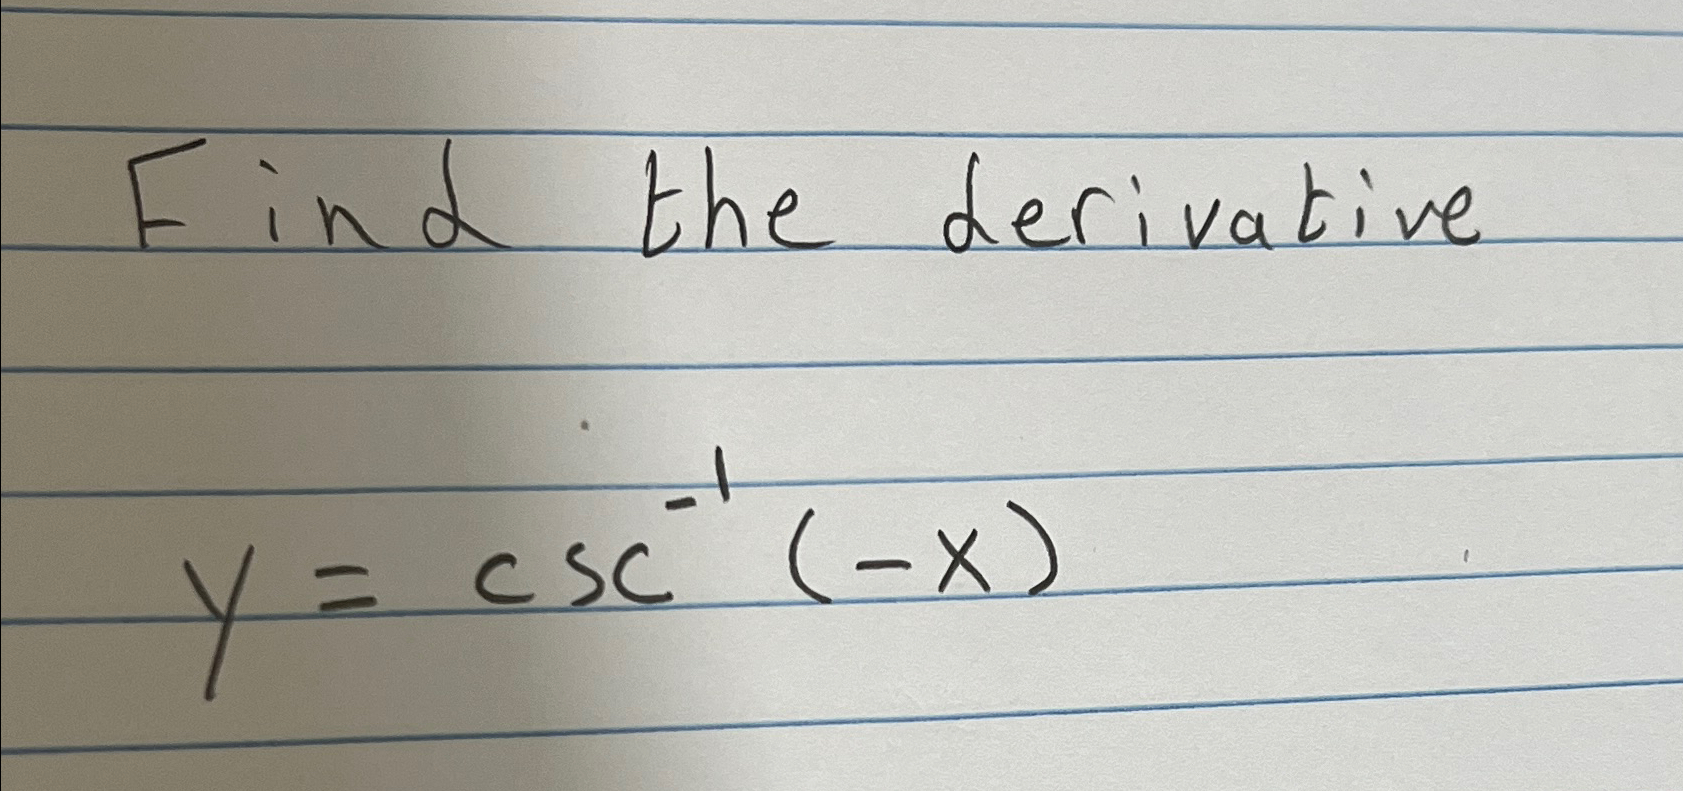 Find the derivative
y = csc⁻¹ (-x)